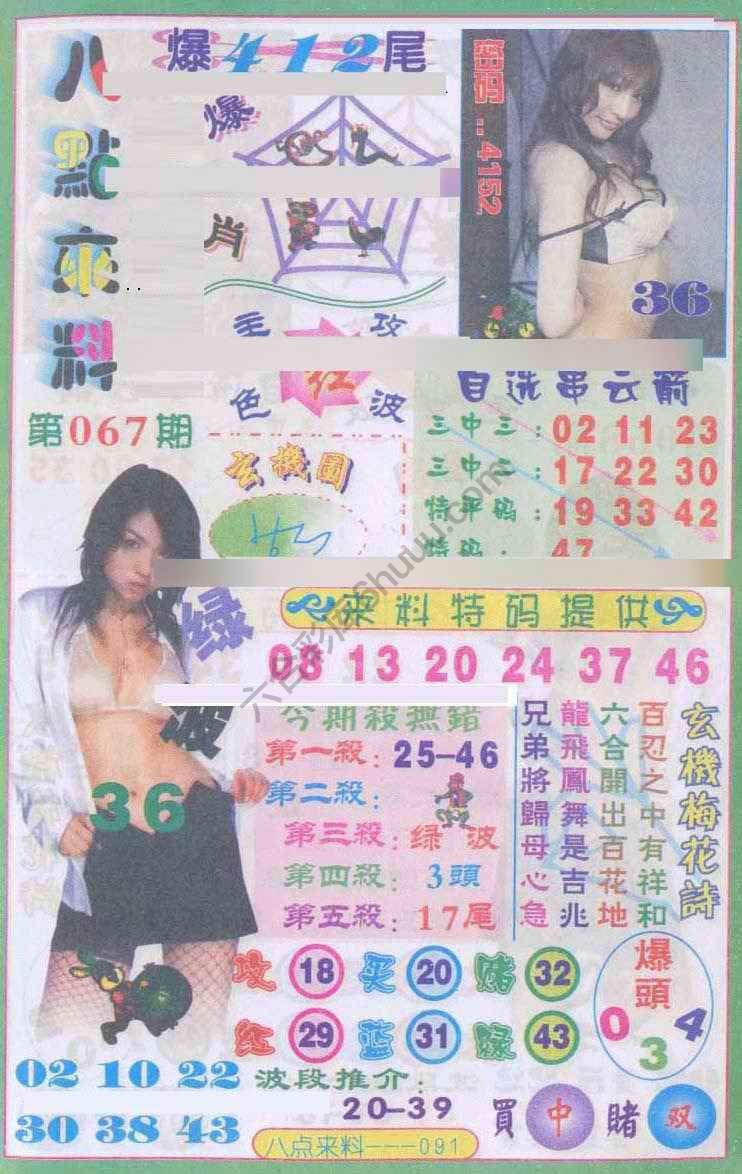 八點來料
爆412尾
爆
肖
密..4152
36
主攻
色红波
第067期
玄機圖
自选串云箭
三中三:02 11 23
三中三:17 22 30
特平码:19 33 42
特码:47
六合彩图 6huuu.com
來料特码提供
08 13 20 24 37 46
绿波
36
今期殺無錯
第一殺:25-46
第二殺:
第三殺:绿波
第四殺:3頭
第五殺:17尾
玄機梅花詩
百忍之中有祥和
六合開出百花地
龍飛鳳舞是吉兆
兄弟將歸母心急
攻 18 买 20 赌 32
红 29 蓝 31 绿 43
爆頭
0 3 4
02 10 22
30 38 43
波段推介:
20-39
買中賭双
八点来料---091